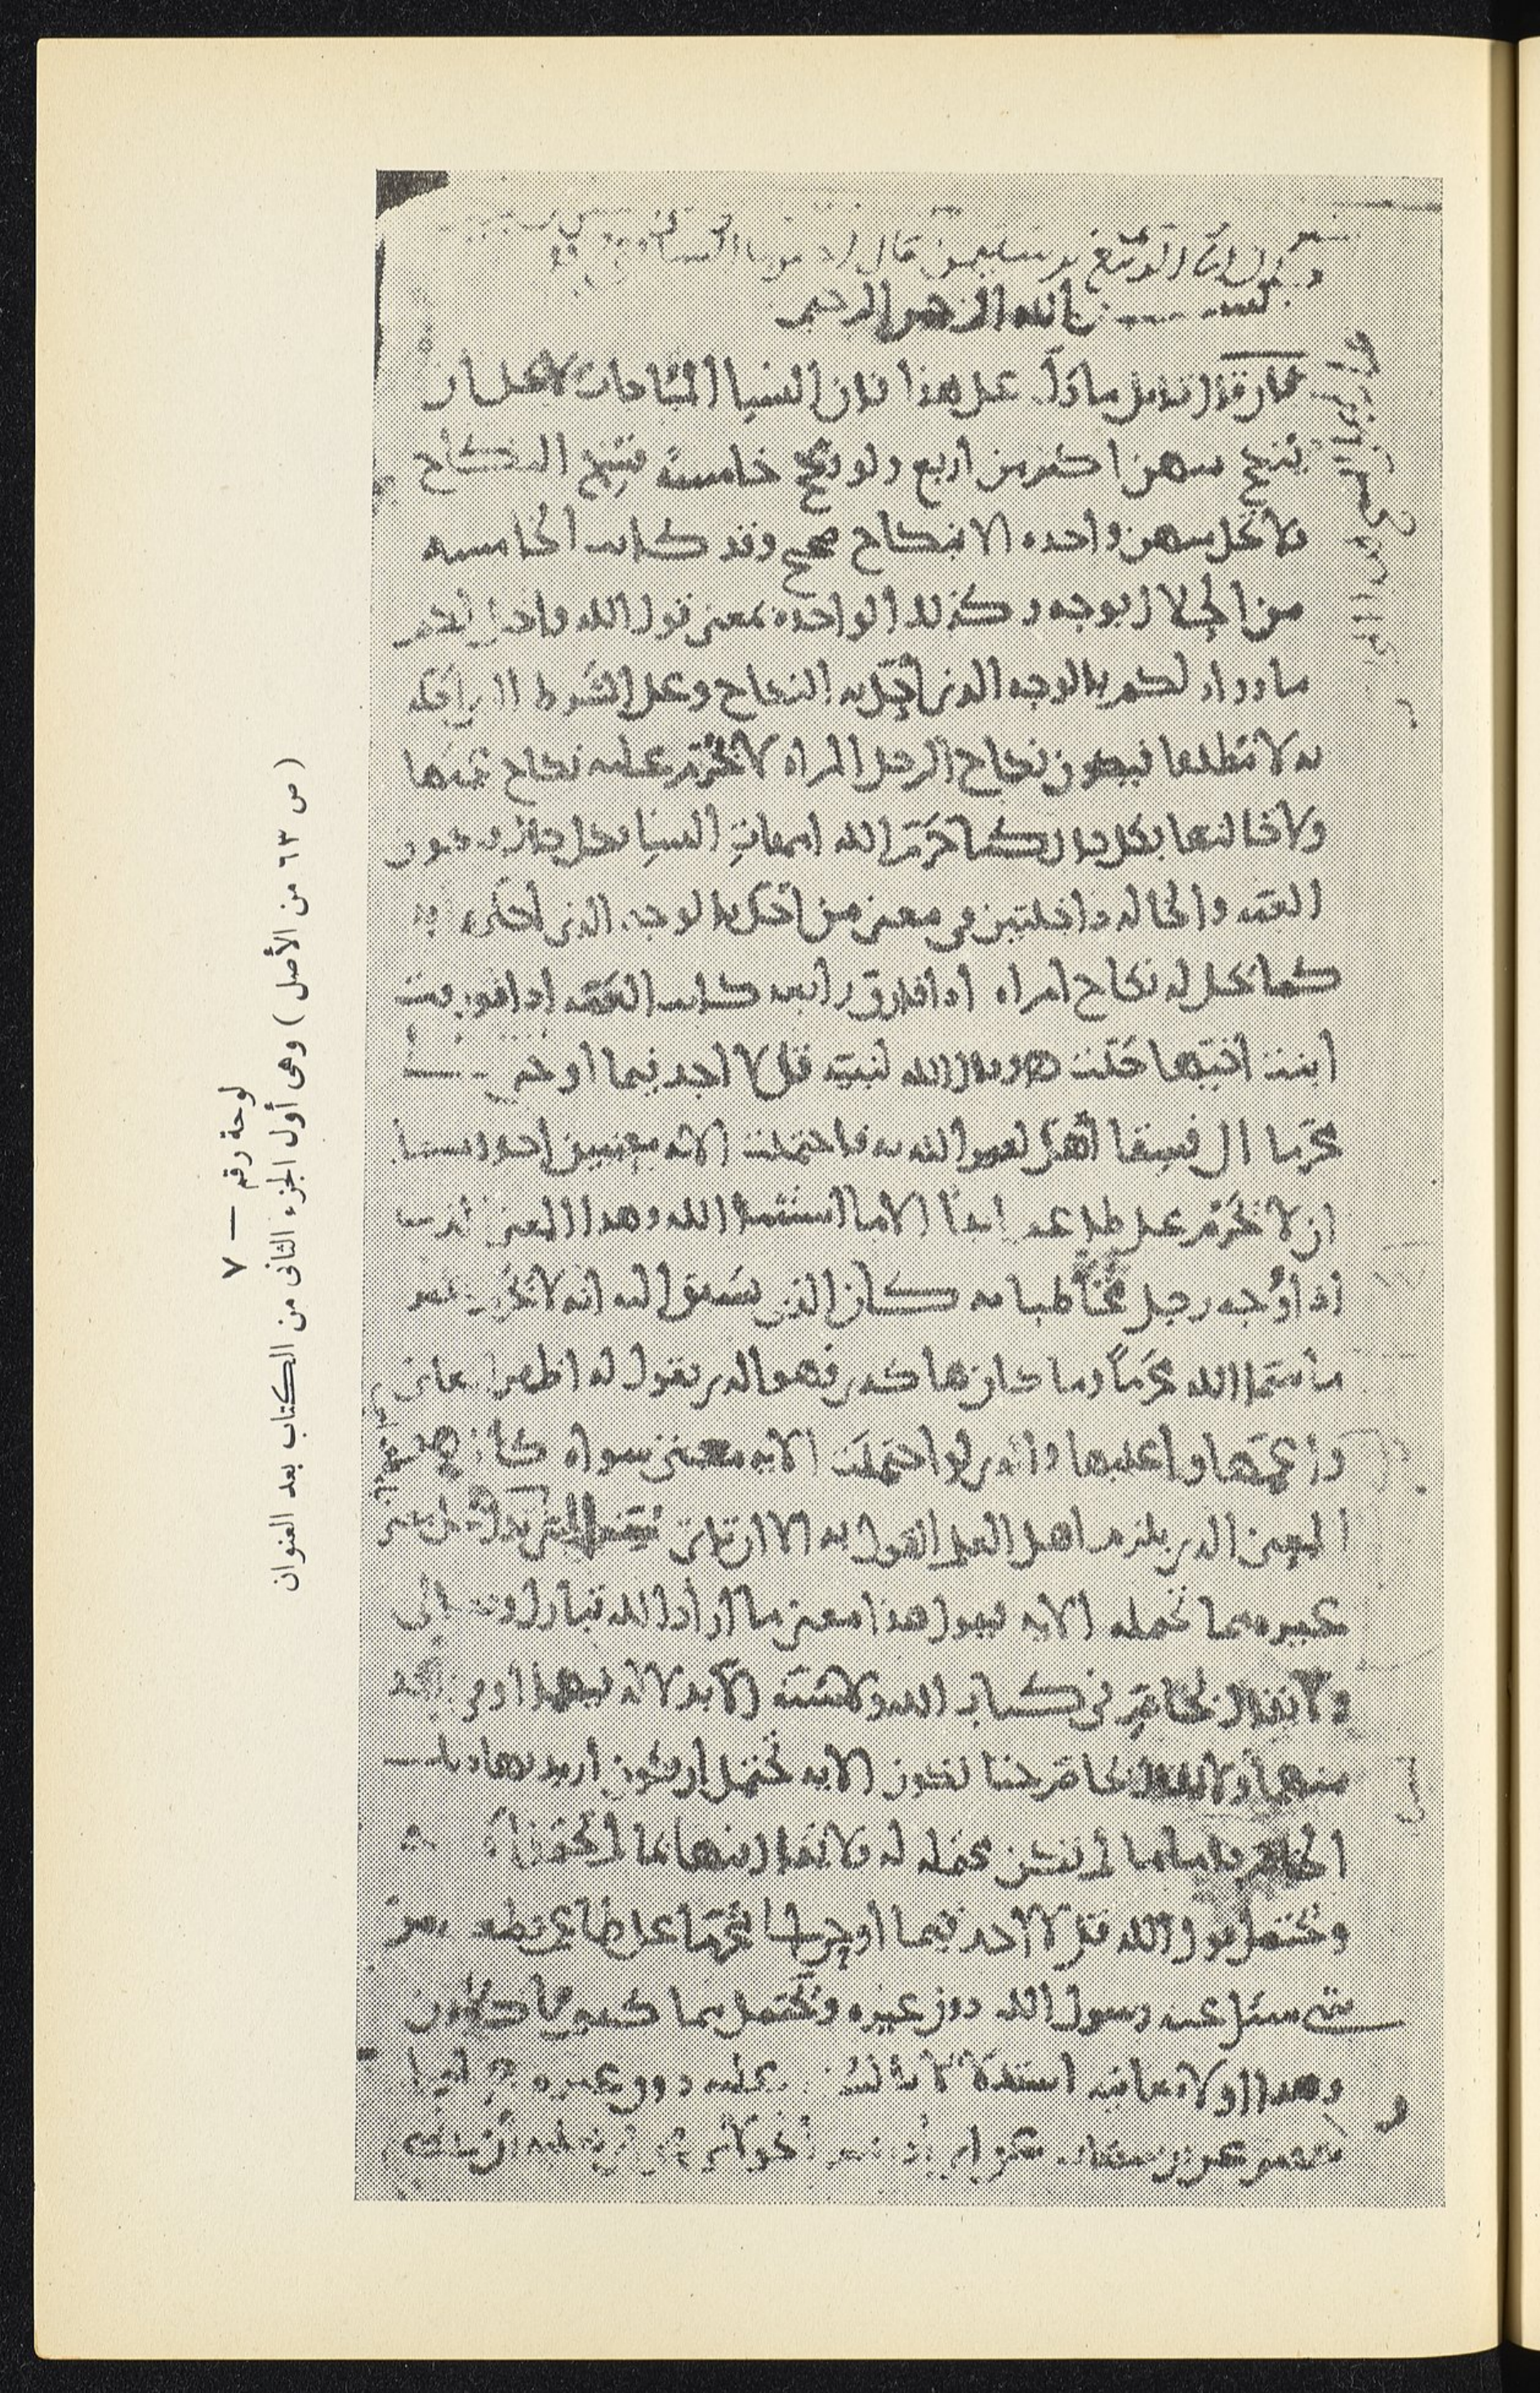 بسم الله الرحمن الرحيم
فان قال قايل ما دل على هذا فان النسا المباحات لا يحل ان
ينكح منهن اكثر من اربع ولو نكح خامسة فسخ النكاح
فلا تحل منهن واحده الا بنكاح صحيح وقد كانت الخامسه
من الحلال بوجه وكذلك الواحدة بمعنى قول الله واحل لكم
ما وراء ذلكم بالوجه الذي احل به النكاح وعلى الشرط الذي احله
به لا مطلقا فيكون نكاح الرجل المراه لا يحرم عليه نكاح عمتها
ولا خالتها بكل حال كما حرم الله امهات النسا بكل حال فتكون
العمه والخاله داخلتين في معنى من احل بالوجه الذي احلها به
كما يحل له نكاح امراه اذا فارق رابعه كانت العمه اذا فورقت
ابنت اخيها حلت وقال الله لنبيه قل لا اجد فيما اوحي
محرما الى فسقا اهل لغير الله به فاحتملت الايه معنيين احدهما
ان لا يحرم على طاعم ابدا الا ما استثنى الله وهذا المعنى الذي
اذا ووجه رجل مخاطبا به كان الذي يسبق اليه انه لا يحرم غير
ما سمى الله محرما وما كان هكذا فهو الذي يقول له اظهر المعاني
واعمها واغلبها والذي لو احتملت الايه معنى سواه كان هو
المعنى الذي يلزم اهل العلم القول به الا ان تاتي سنة النبي تدل على معنى
غيره مما تحتمله الايه فيقول هذا معنى ما اراد الله تبارك وتعالى
ولا يقال بخاص في كتاب الله ولا سنة الا بدلاله فيهما او في واحد
منهما ولا يقال بخاص حتى تكون الايه تحتمل ان يكون اريد بها ذلك
الخاص فاما ما لم تكن محتمله له فلا يقال فيها بما لم تحتمل
ويحتمل قول الله قل لا اجد فيما اوحي الي محرما على طاعم يطعمه من
شي سئل عنه رسول الله دون غيره ويحتمل مما كنتم تاكلون
وهذا اولى معانيه استدلالا بالسنة عليه دون غيره
لوحة رقم — ٧
( ص ٦٣ من الأصل ) وهى أول الجزء الثانى من الكتاب بعد العنوان